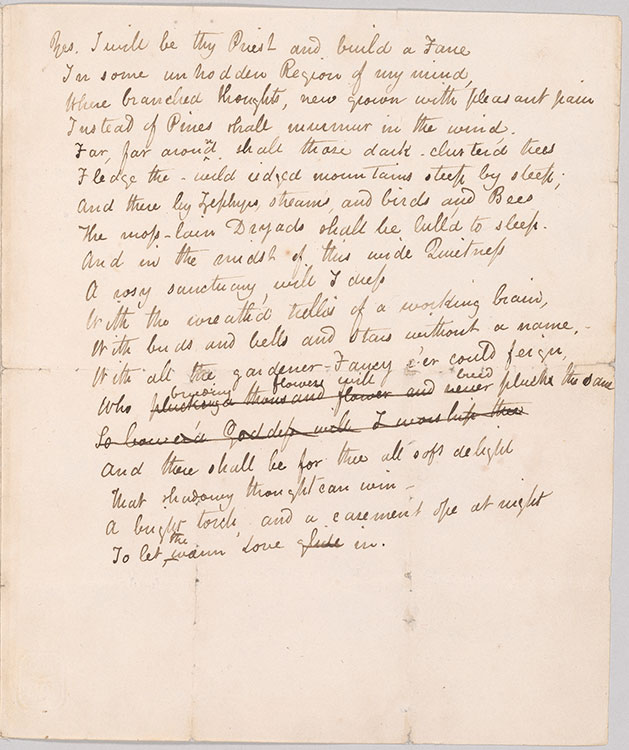 Yes. I will be thy Priest and build a Fane
In some untrodden Region of my mind,
Where branched thoughts, new grown with pleasant pain
Instead of Pines shall murmur in the wind.
Far, far around shall those dark-cluster'd trees
Fledge the wild ridged mountains steep by steep;
And there by Zephyrs, streams, and birds and Bees
The moss-lain Dryads shall be lulld to sleep.
And in the midst of this wide Quietness
A rosy sanctuary will I dress
With the wreath'd trellis of a working brain,
With buds and bells and stars without a name.
With all the gardener-Fancy e'er could feign,
breeding flowers will breed
Who plucking a thousand flower and never plucks the same
So bower'd Goddess will I worship thee
And there shall be for thee all soft delight
That shadowy thought can win —
A bright torch, and a casement ope at night
the
To let warm Love glide in.